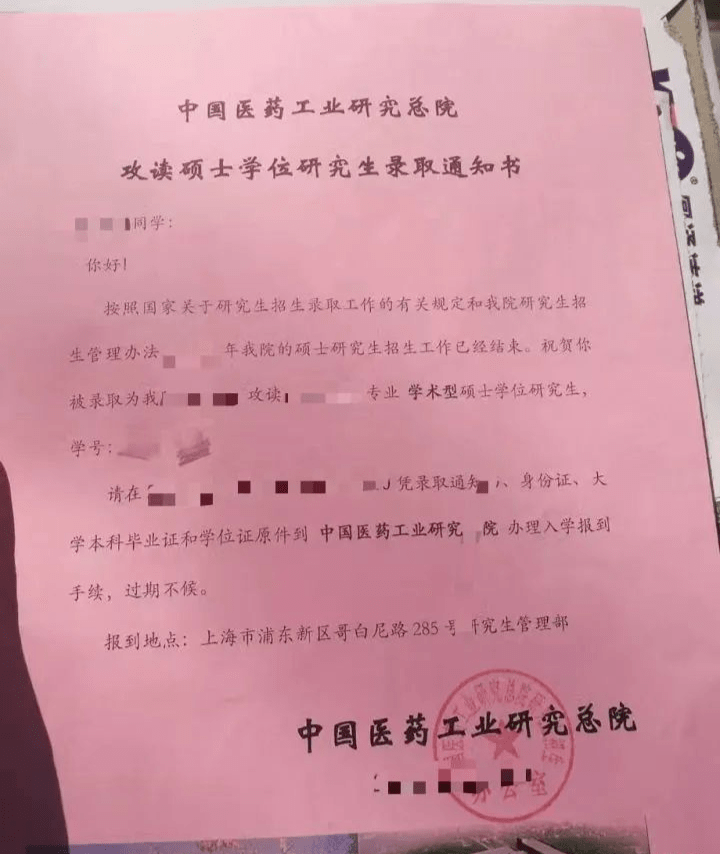 中国医药工业研究总院
攻读硕士学位研究生录取通知书
同学：
你好！
按照国家关于研究生招生录取工作的有关规定和我院研究生招
生管理办法 年我院的硕士研究生招生工作已经结束。祝贺你
被录取为我 攻读 专业 学术型硕士学位研究生，
学号：
请在 凭录取通知 、身份证、大
学本科毕业证和学位证原件到 中国医药工业研究 院 办理入学报到
手续，过期不候。
报到地点：上海市浦东新区哥白尼路 285 号 研究生管理部
中国医药工业研究总院
办公室